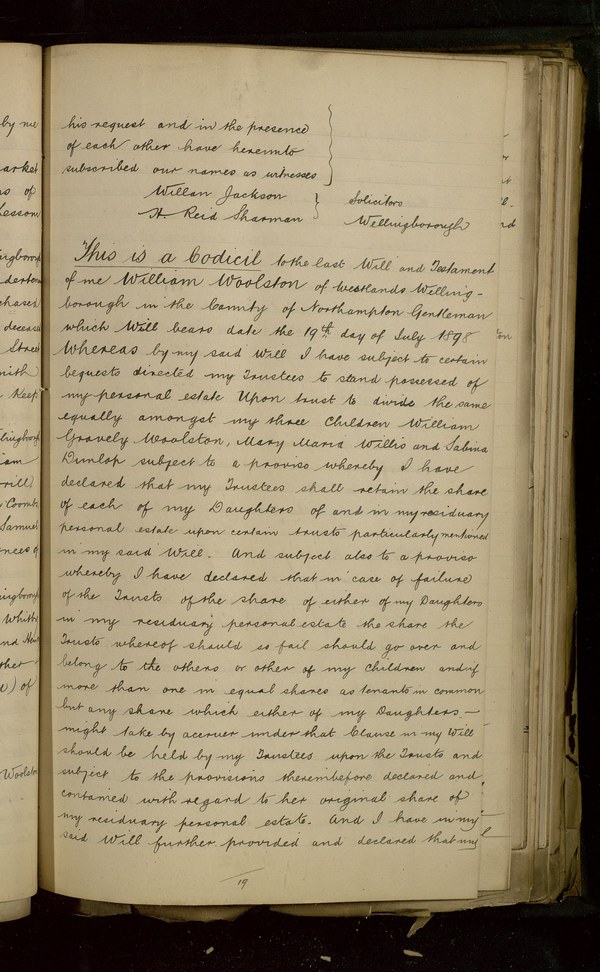 his request and in the presence
of each other have hereunto
subscribed our names as witnesses
Willan Jackson
H. Reid Sharman
Solicitors
Wellingborough
This is a Codicil to the last Will and Testament
of me William Woolston of Westlands Welling-
borough in the County of Northampton Gentleman
which Will bears date the 19th day of July 1898
Whereas by my said Will I have subject to certain
bequests directed my Trustees to stand possessed of
my personal estate Upon trust to divide the same
equally amongst my three Children William
Gravely Woolston, Mary Maria Willis and Sabina
Dunlop subject to a proviso whereby I have
declared that my Trustees shall retain the share
of each of my Daughters of and in my residuary
personal estate upon certain trusts particularly mentioned
in my said Will. And subject also to a proviso
whereby I have declared that in case of failure
of the Trusts of the share of either of my Daughters
in my residuary personal estate the share the
Trusts whereof should so fail should go over and
belong to the others or other of my Children and if
more than one in equal shares as tenants in common
but any share which either of my Daughters —
might take by accruer under that Clause in my Will
should be held by my Trustees upon the Trusts and
subject to the provisions thereinbefore declared and
contained with regard to her original share of
my residuary personal estate. And I have in my
said Will further provided and declared that my
19